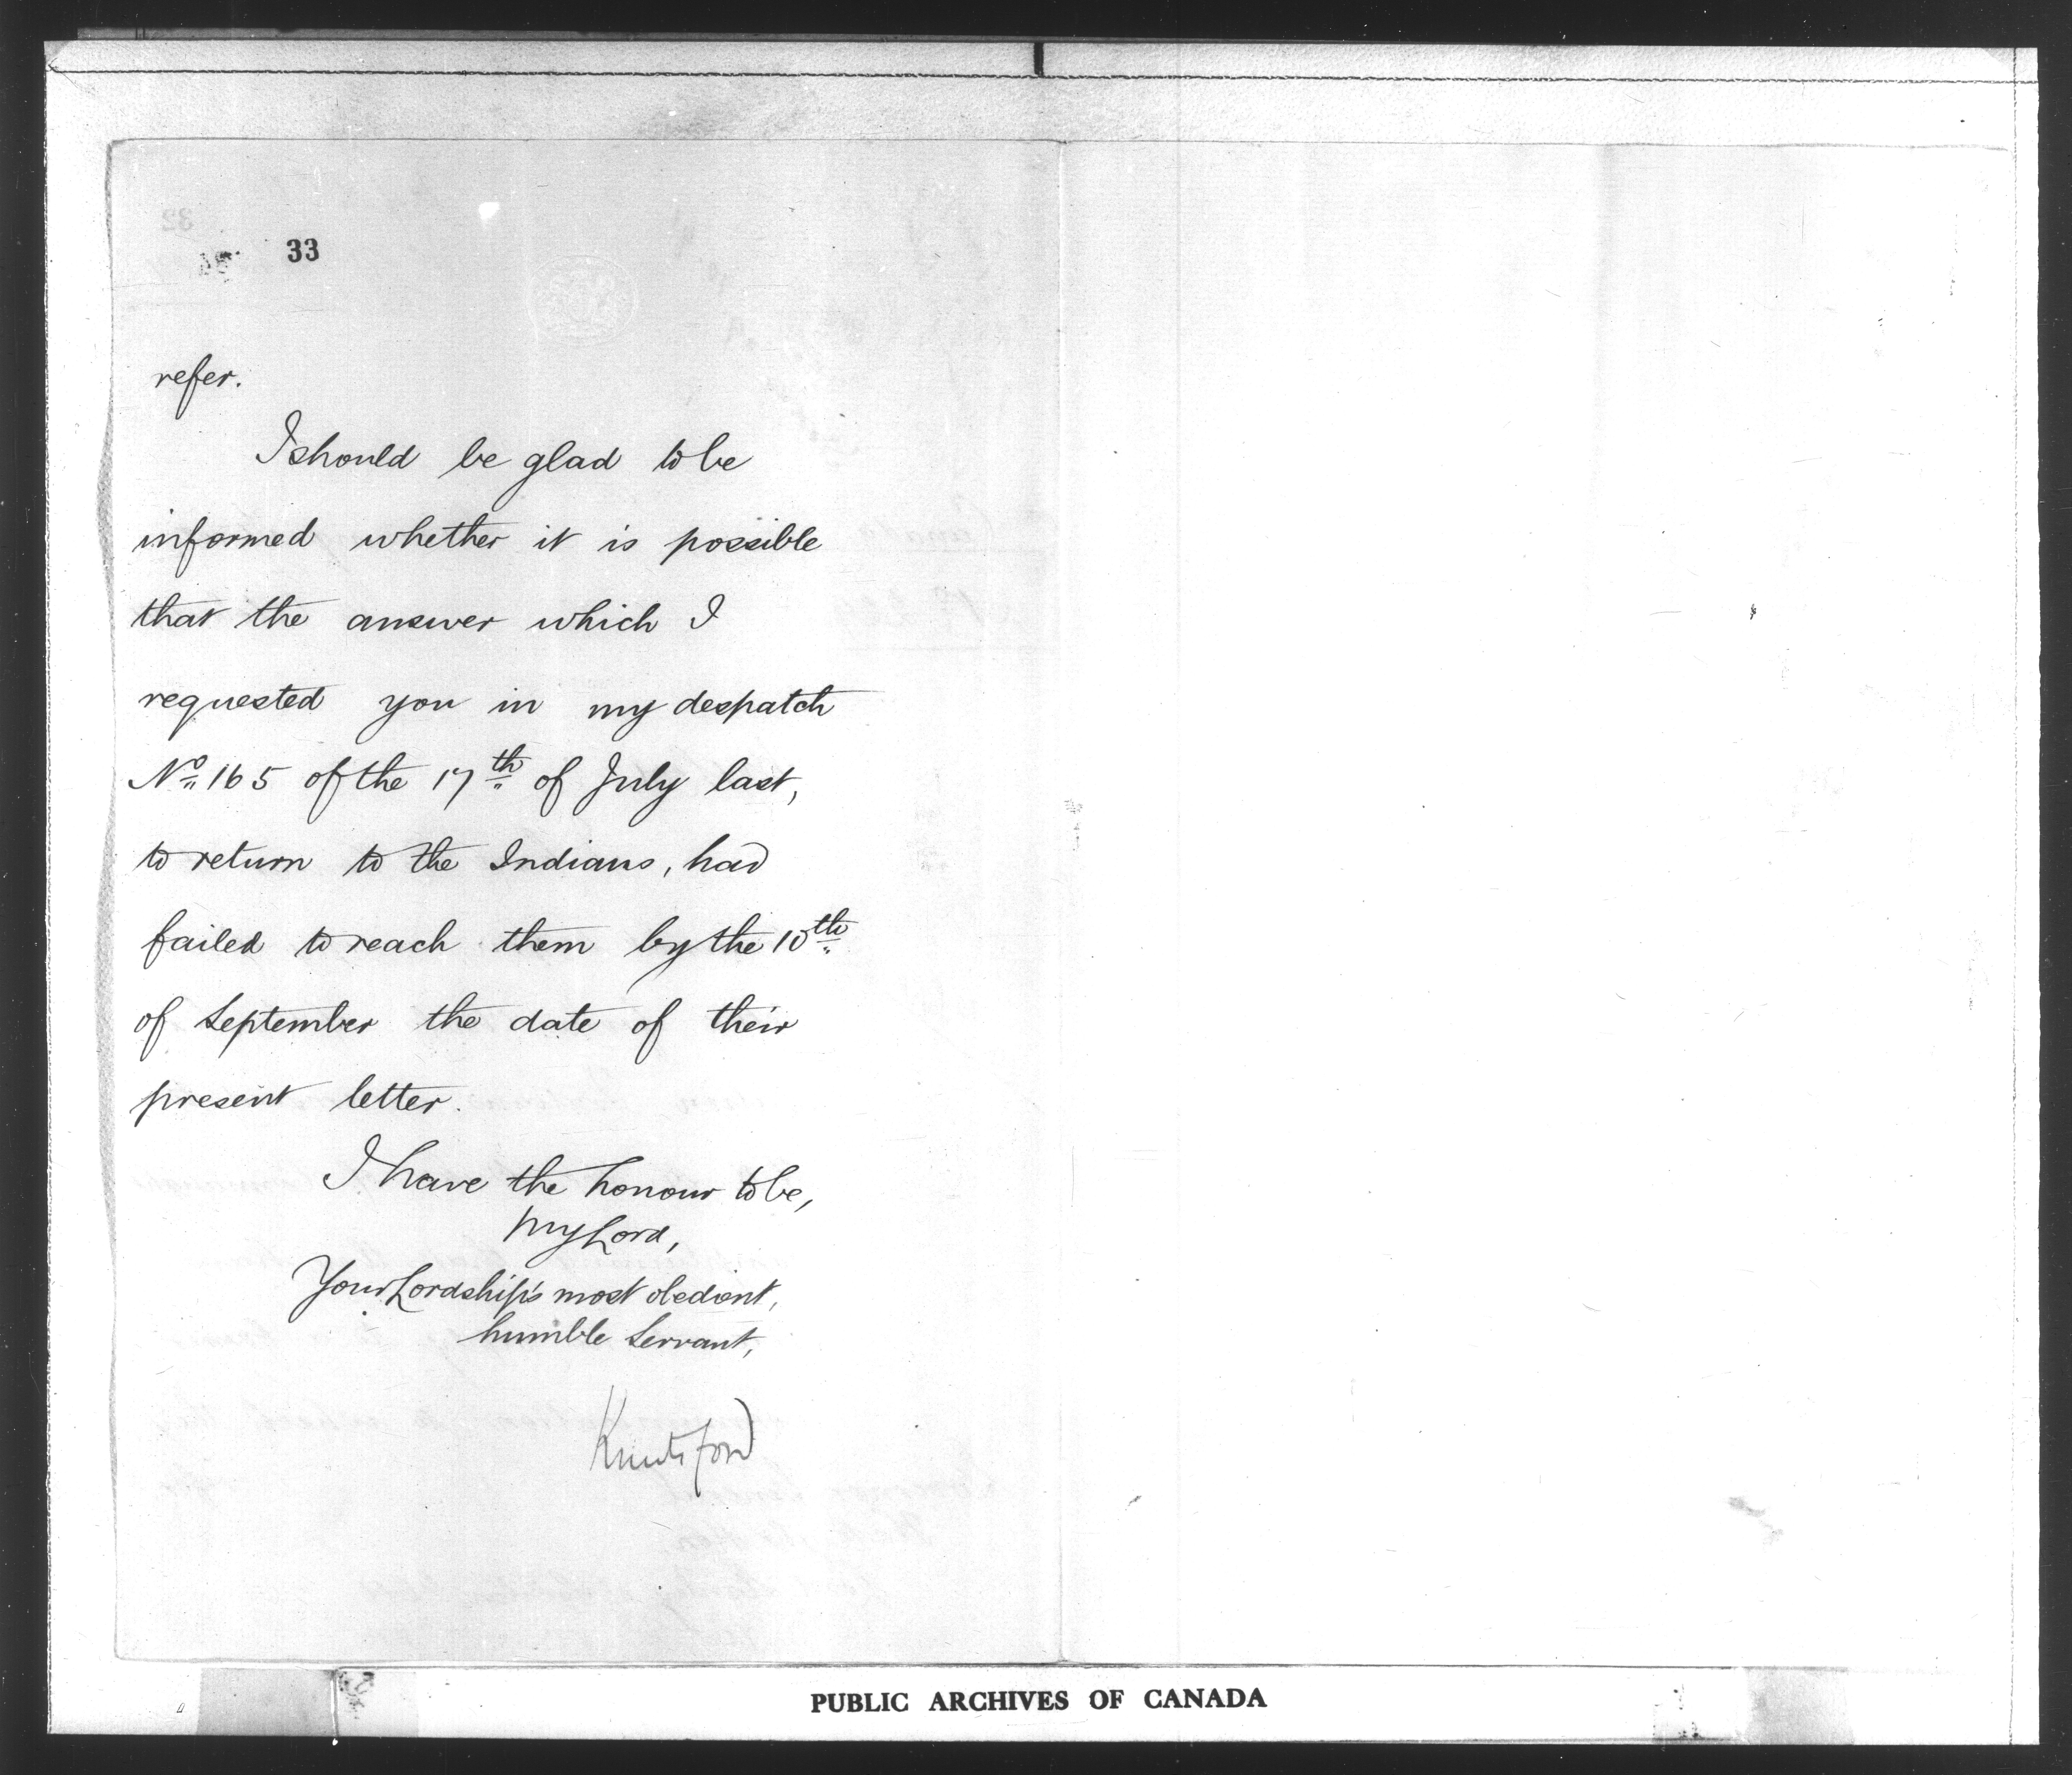 33
refer.
I should be glad to be
informed whether it is possible
that the answer which I
requested you in my despatch
Nº 165 of the 17th of July last,
to return to the Indians, had
failed to reach them by the 10th
of September the date of their
present letter.
I have the honour to be,
My Lord,
Your Lordship's most obedient,
humble Servant,
Knutsford
PUBLIC ARCHIVES OF CANADA